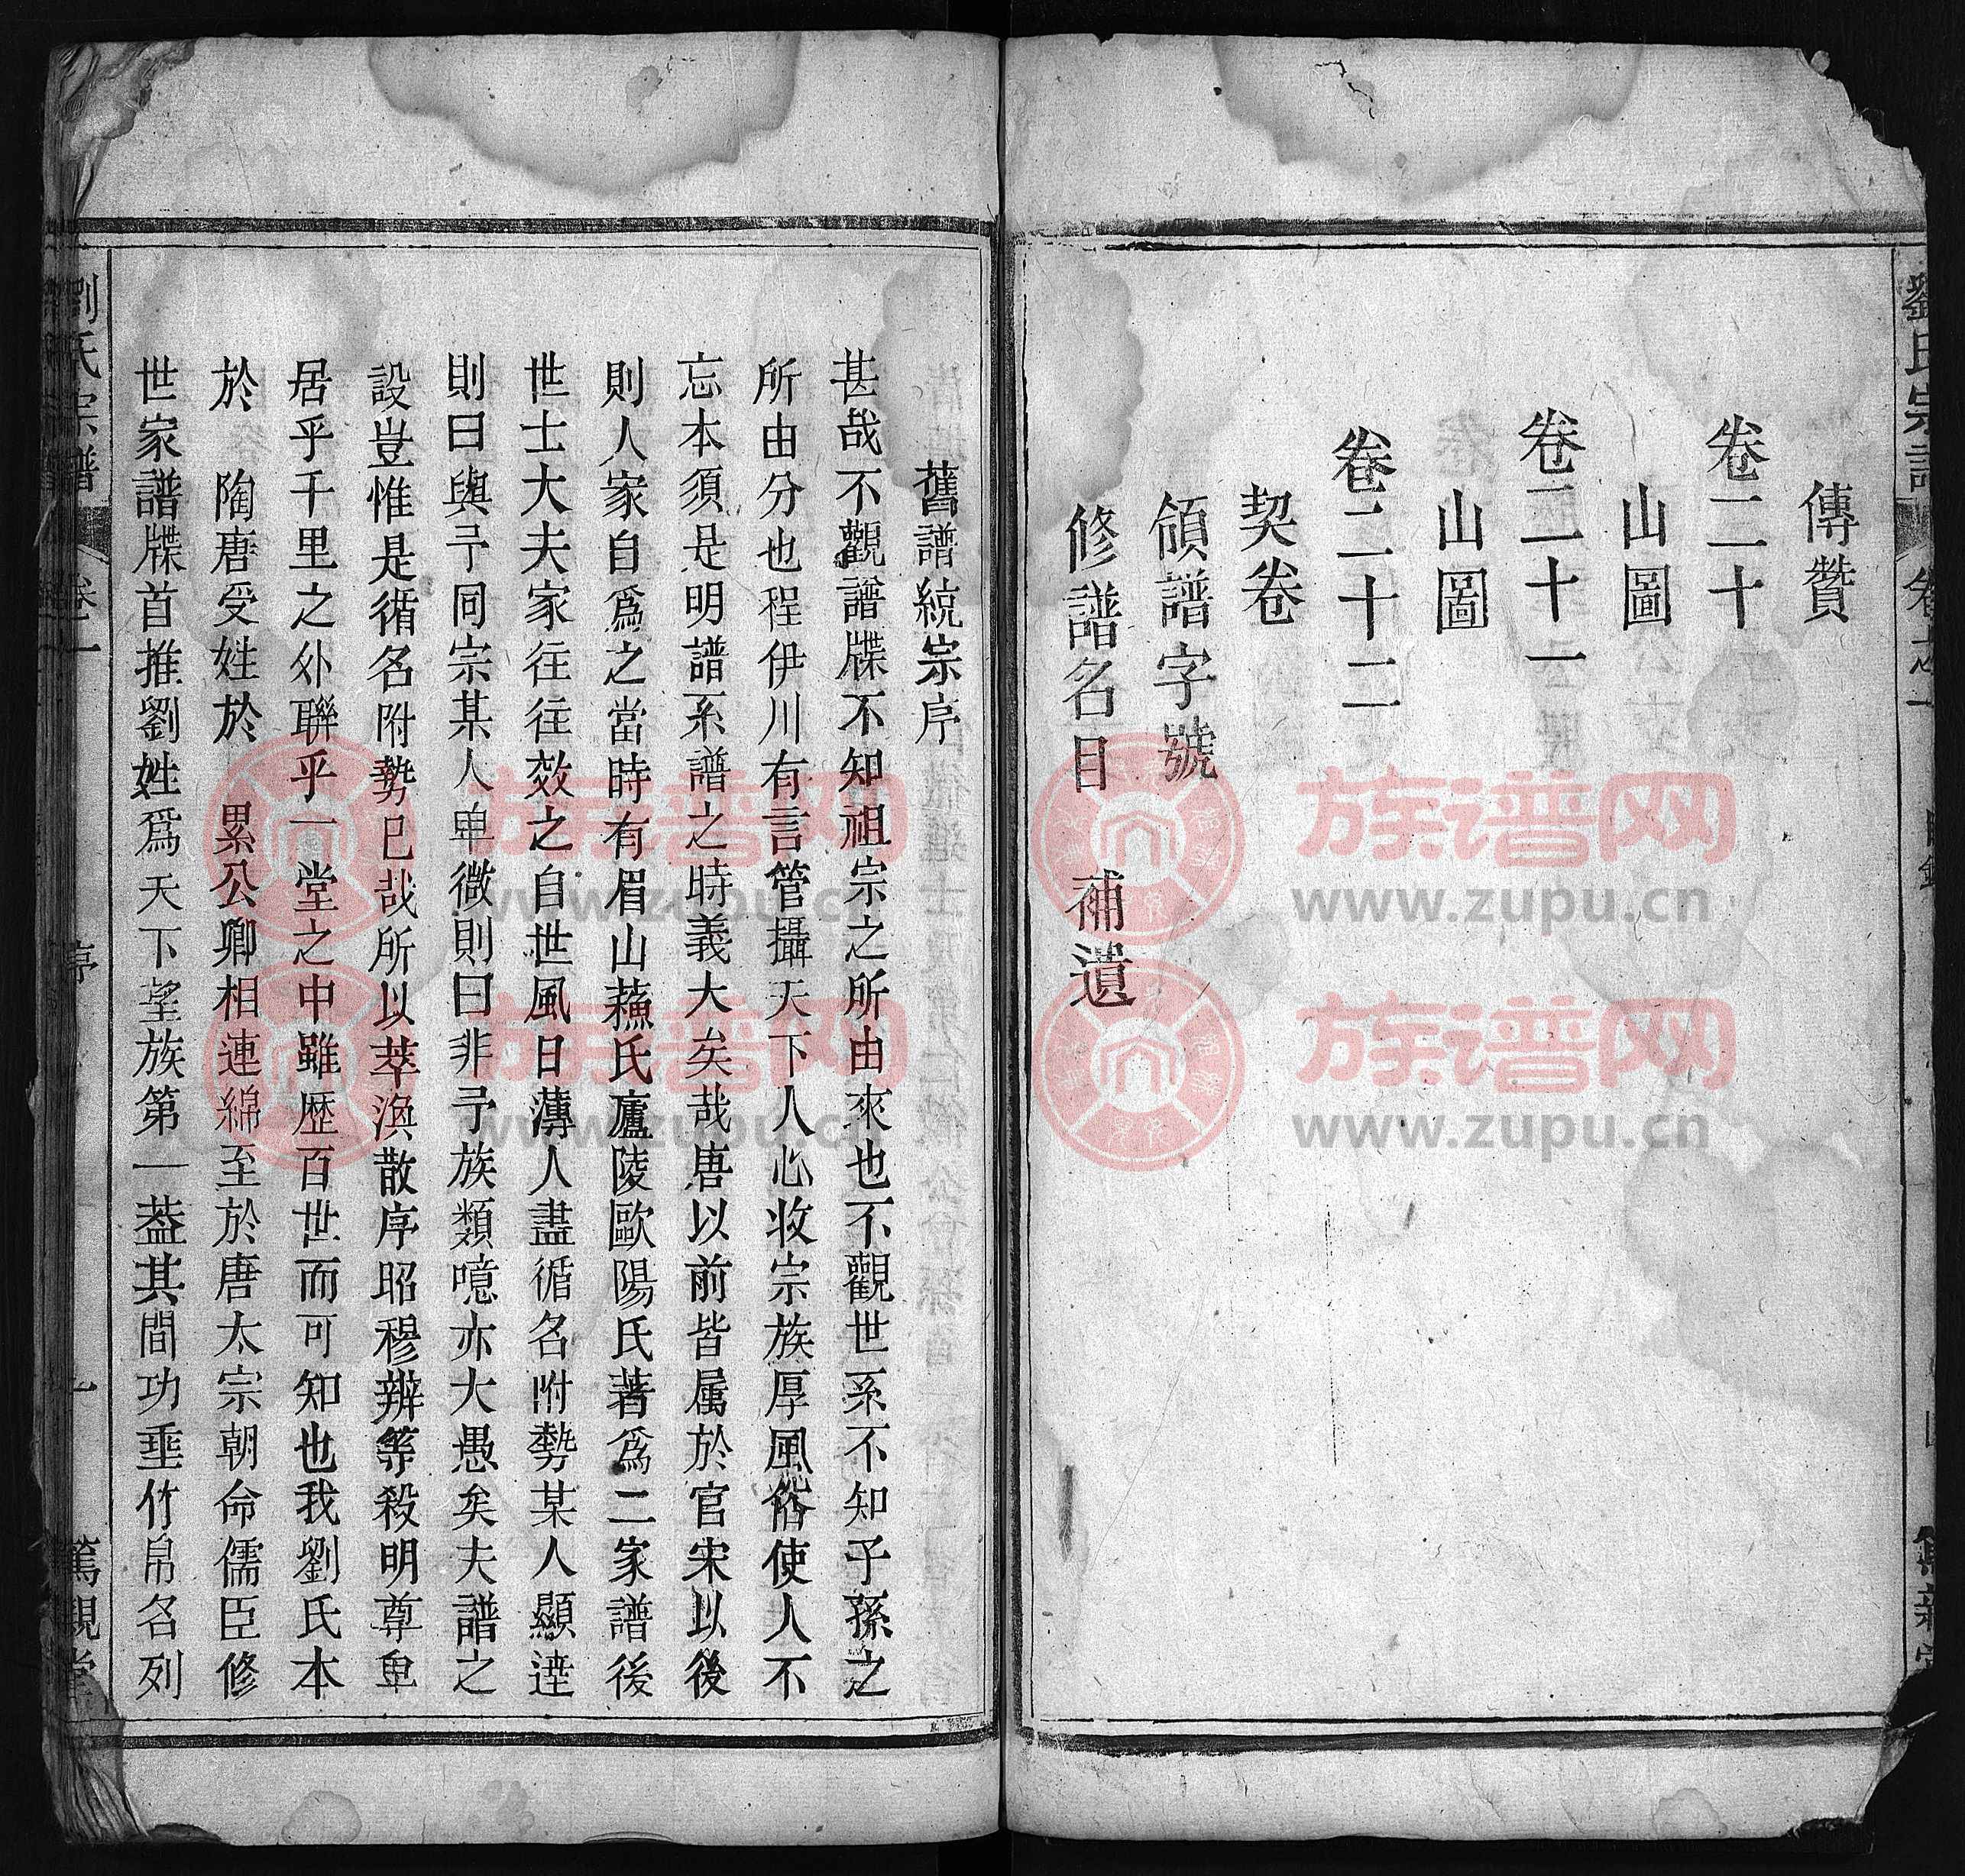 劉氏宗譜
卷之一
傳贊
卷二十
山圖
卷二十一
山圖
卷二十二
契卷
領譜字號
修譜名目 補遺
舊譜統宗序
甚哉不觀譜牒不知祖宗之所由來也不觀世系不知子孫之
所由分也程伊川有言管攝天下人心收宗族厚風俗使人不
忘本須是明譜系譜之時義大矣哉唐以前皆属於官宋以後
則人家自爲之當時有眉山蘓氏廬陵歐陽氏著爲二家譜後
世士大夫家往往效之自世風日薄人盡循名附勢某人顯達
則曰與予同宗某人卑微則曰非予族類噫亦大愚矣夫譜之
設豈惟是循名附勢已哉所以萃渙散序昭穆辨等殺明尊卑
居乎千里之外聯乎一堂之中雖歴百世而可知也我劉氏本
於 陶唐受姓於 累公卿相連綿至於唐太宗朝命儒臣修
世家譜牒首推劉姓爲天下望族第一葢其間功垂竹帛名列
劉氏宗譜
卷一
序
一
篤親堂
族谱网
www.zupu.cn
族谱网
www.zupu.cn
族谱网
www.zupu.cn
族谱网
www.zupu.cn